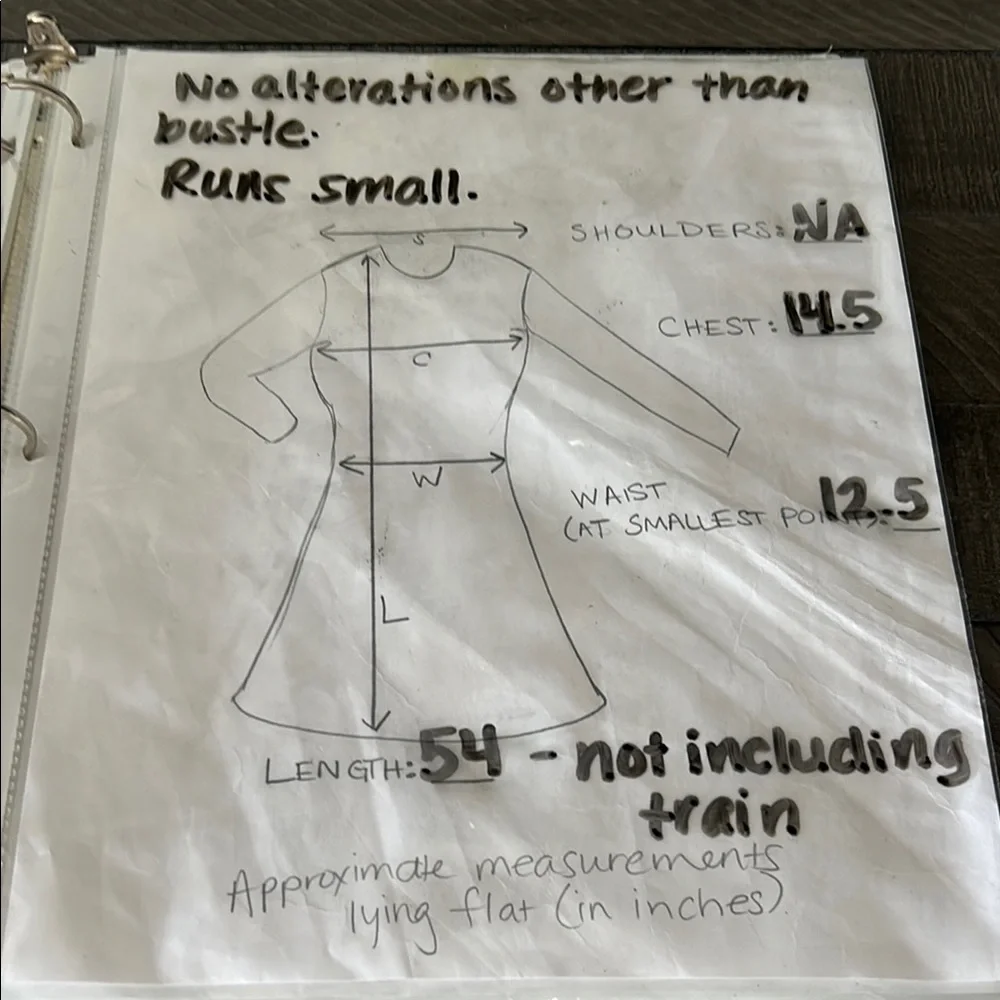 No alterations other than
bustle.
Runs small.
S
SHOULDERS: NA
CHEST: 14.5
C
W
WAIST
(AT SMALLEST POINT): 12.5
L
LENGTH: 54 - not including
train
Approximate measurements
lying flat (in inches)